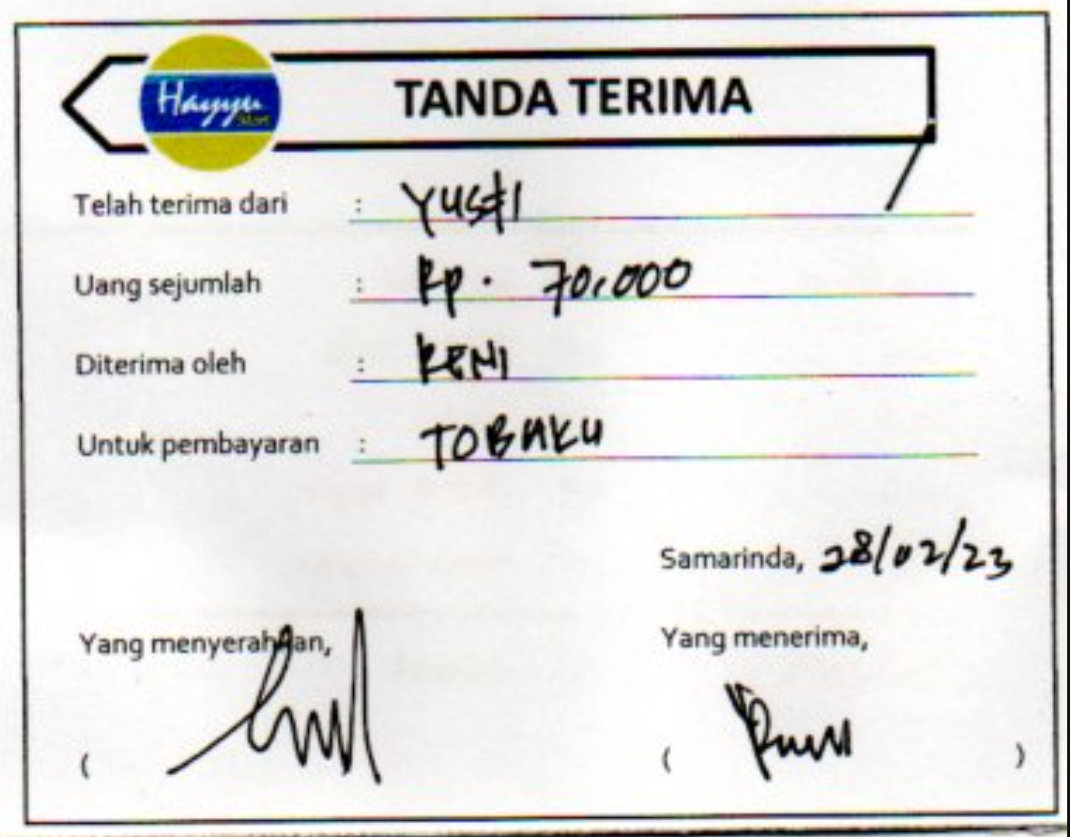 Hayyu
TANDA TERIMA
Telah terima dari : YUSFI
Uang sejumlah : Rp. 70.000
Diterima oleh : RENI
Untuk pembayaran : TOBAKU
Samarinda, 28/02/23
Yang menyerahkan,
Yang menerima,
( ( )